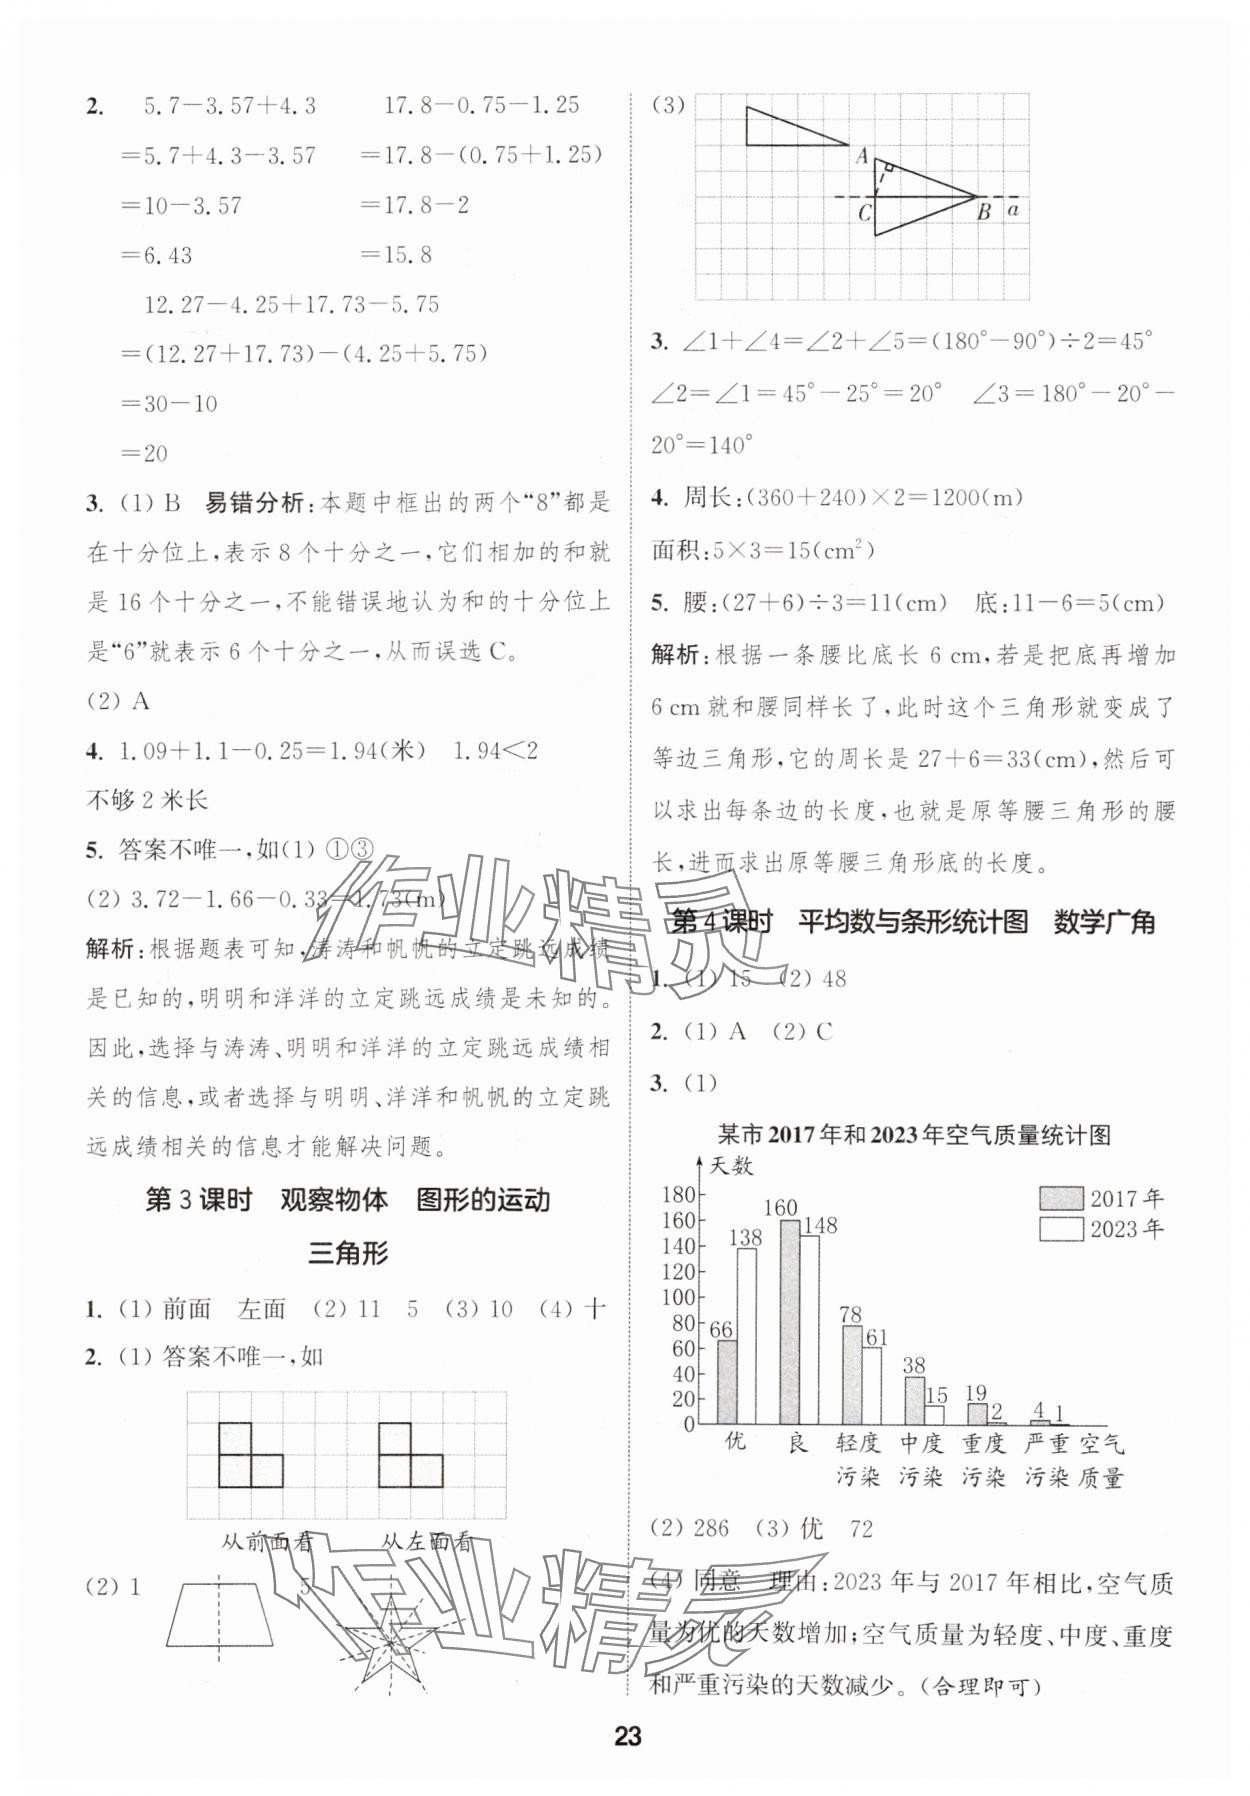 2. 5.7－3.57＋4.3　17.8－0.75－1.25
＝5.7＋4.3－3.57　＝17.8－(0.75＋1.25)
＝10－3.57　＝17.8－2
＝6.43　＝15.8
12.27－4.25＋17.73－5.75
＝(12.27＋17.73)－(4.25＋5.75)
＝30－10
＝20
3. (1) B　易错分析:本题中框出的两个“8”都是
在十分位上,表示 8 个十分之一,它们相加的和就
是 16 个十分之一,不能错误地认为和的十分位上
是“6”就表示 6 个十分之一,从而误选 C。
(2) A
4. 1.09＋1.1－0.25＝1.94(米)　1.94＜2
不够 2 米长
5. 答案不唯一,如(1) ①③
(2) 3.72－1.66－0.33＝1.73(m)
解析:根据题表可知,涛涛和帆帆的立定跳远成绩
是已知的,明明和洋洋的立定跳远成绩是未知的。
因此,选择与涛涛、明明和洋洋的立定跳远成绩相
关的信息,或者选择与明明、洋洋和帆帆的立定跳
远成绩相关的信息才能解决问题。
第 3 课时　观察物体　图形的运动
三角形
1. (1) 前面　左面　(2) 11　5　(3) 10　(4) 十
2. (1) 答案不唯一,如
从前面看　从左面看
(2) 1　5
(3)
A
C　B　a
3. ∠1＋∠4＝∠2＋∠5＝(180°－90°)÷2＝45°
∠2＝∠1＝45°－25°＝20°　∠3＝180°－20°－
20°＝140°
4. 周长:(360＋240)×2＝1200(m)
面积:5×3＝15(cm²)
5. 腰:(27＋6)÷3＝11(cm)　底:11－6＝5(cm)
解析:根据一条腰比底长 6 cm,若是把底再增加
6 cm 就和腰同样长了,此时这个三角形就变成了
等边三角形,它的周长是 27＋6＝33(cm),然后可
以求出每条边的长度,也就是原等腰三角形的腰
长,进而求出原等腰三角形底的长度。
第 4 课时　平均数与条形统计图　数学广角
1. (1) 15　(2) 48
2. (1) A　(2) C
3. (1)
某市 2017 年和 2023 年空气质量统计图
天数
2017 年
2023 年
180
160
140
120
100
80
60
40
20
0
66　138　160　148　78　61　38　15　19　2　4　1
优　良　轻度　中度　重度　严重　空气
污染　污染　污染　污染　质量
(2) 286　(3) 优　72
(4) 同意　理由:2023 年与 2017 年相比,空气质
量为优的天数增加;空气质量为轻度、中度、重度
和严重污染的天数减少。(合理即可)
23
作业精灵
作业精灵